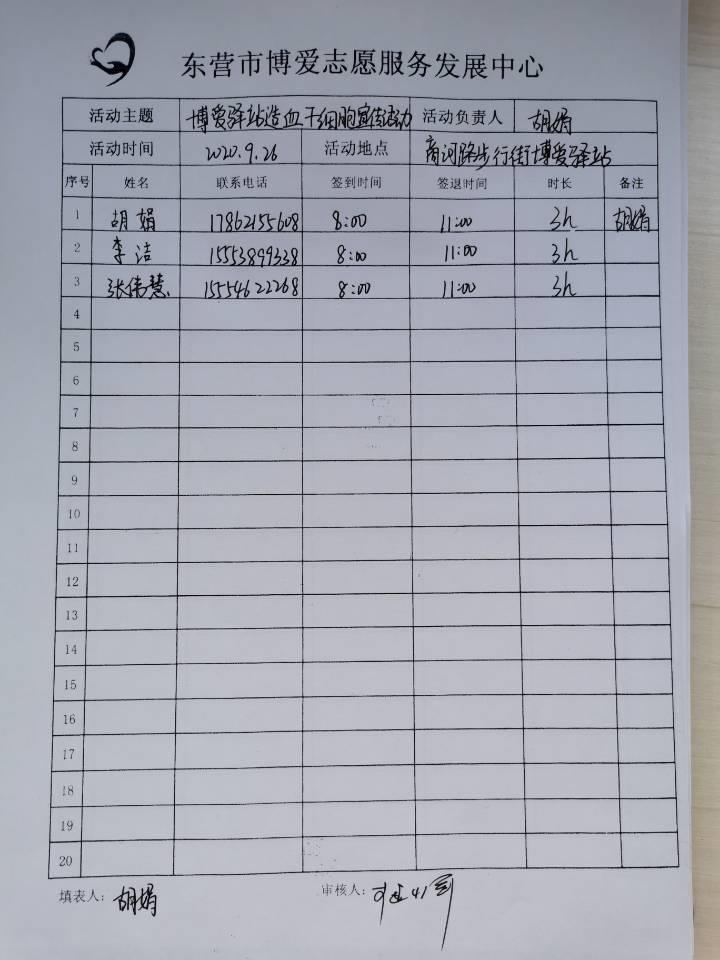 东营市博爱志愿服务发展中心
活动主题 博爱驿站造血干细胞宣传活动 活动负责人 胡娟
活动时间 2020.9.26 活动地点 商河路步行街博爱驿站
序号 姓名 联系电话 签到时间 签退时间 时长 备注
1 胡娟 17862155608 8:00 11:00 3h 胡娟
2 李洁 15553899338 8:00 11:00 3h
3 张伟慧 15554622268 8:00 11:00 3h
4
5
6
7
8
9
10
11
12
13
14
15
16
17
18
19
20
填表人: 胡娟 审核人: